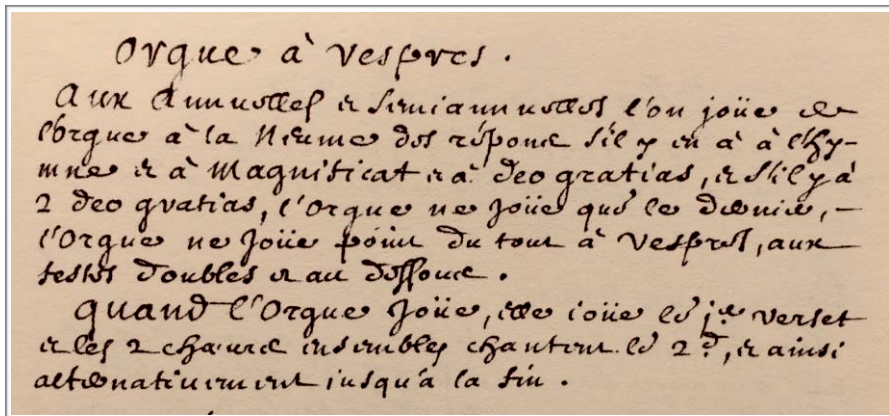 Orgue à Vespres.
Aux Annuelles et semiannuelles l'on joüe de
l'orgue à la Neume des répons s'il y en à à l'hy-
mne et à Magnificat et à deo gratias, et s'il y à
2 deo gratias, l'Orgue ne Joüe que le dernier,
l'Orgue ne Joüe point du tout à Vespres, aux
festes doubles et au dessous.
Quand l'Orgue Joüe, elle ioüe le 1er verset
et les 2 chœurs ensembles chantent le 2d, et ainsi
alternativement jusqu'à la fin.